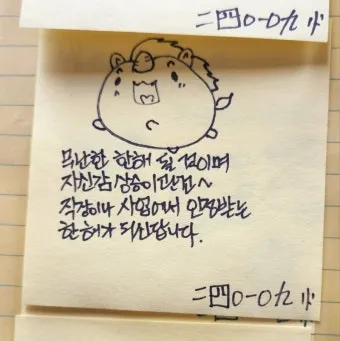 二四0-0九 小
무난한 한해 될 것이며
자신감 상승이 관건~
직장이나 사업에서 인정받는
한해가 되신답니다.
二四0-0九 小